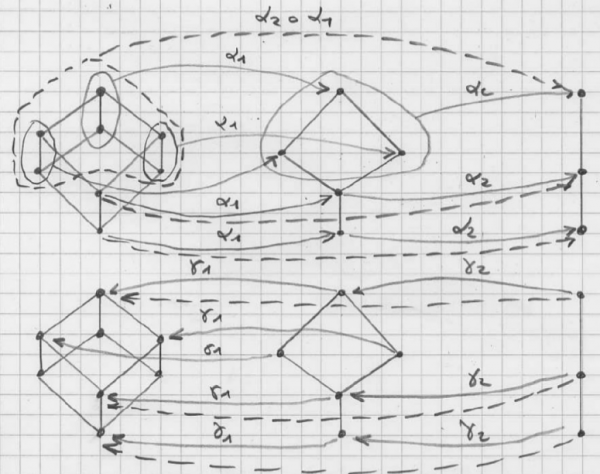 α₂ ∘ α₁
α₁
α₂
α₁
α₁
α₂
α₁
α₂
γ₁
γ₂
γ₁
γ₁
γ₁
γ₂
γ₁
γ₂